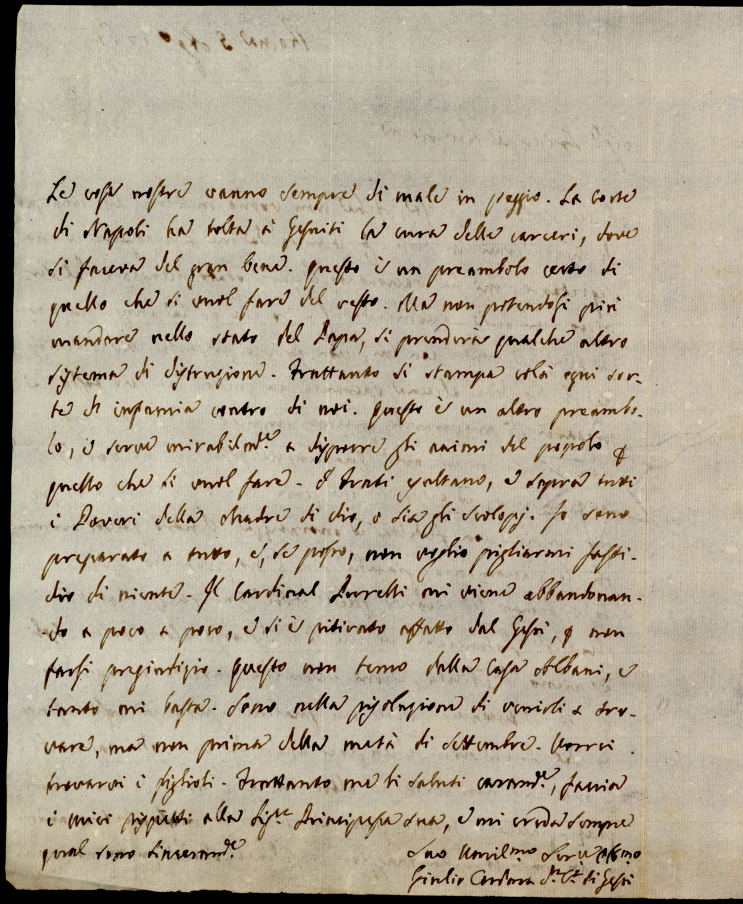 Le cose nostre vanno sempre di male in peggio. La Corte
di Napoli ha tolta à Gesuiti la cura delle carceri, dove
si faceva del gran bene. Questo è un preambolo certo di
quello che si vuol fare del resto. Ma non potendosi più
mandare nello stato del Papa, si prenderà qualche altro
systema di distruzione. Frattanto si stampa colà ogni sor-
te di infamia contro di noi. Questo è un altro preambo-
lo, e serve mirabilm.te a disporre gli animi del popolo p
quello che si vuol fare. I Frati esultano, e sopra tutti
i Poveri della Madre di Dio, o sia gli Scolopj. Io sono
preparato a tutto, e, se posso, non voglio pigliarmi fasti-
dio di niente. Il Cardinal Borelli mi viene abbandonan-
do a poco a poco, e si è ritirato affatto dal Gesù, p non
farsi pregiudizio. Questo non temo dalla Casa Albani, e
tanto mi basta. Sono nella risoluzione di venirli a tro-
vare, ma non prima della metà di settembre. Vorrei
trovarvi i figlioli. Frattanto me li saluti caram.te, faccia
i miei rispetti alla Sig.ra Principessa sua, e mi creda sempre
qual sono sinceram.te
Suo Umil.mo Ser.
Giulio Cordara di Gesù